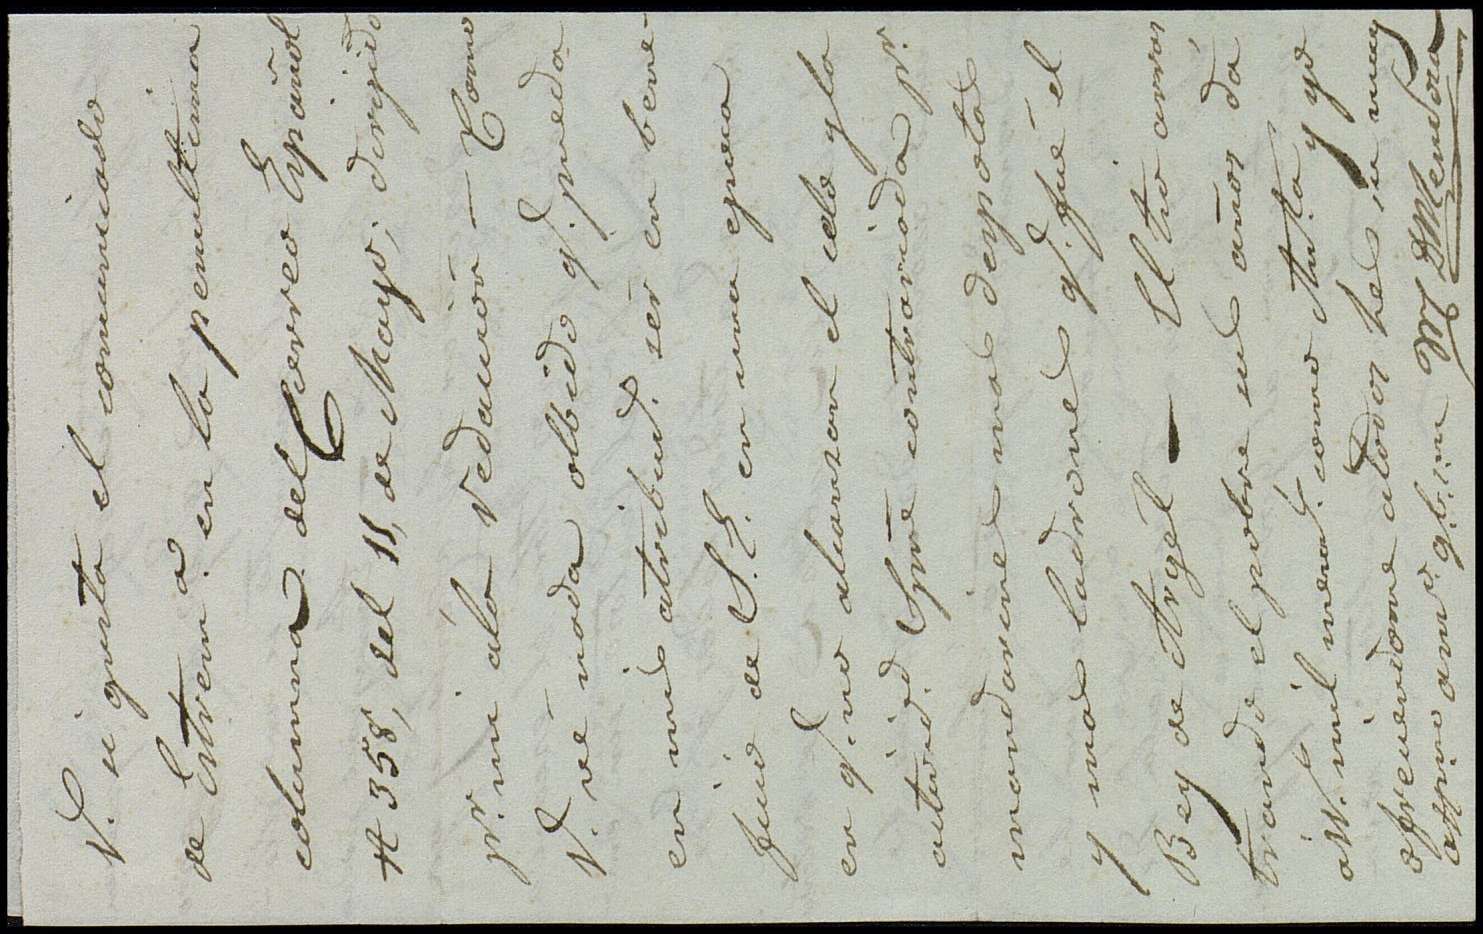 V. si gusta el comunicado
de Extrem.a en la penultima
columna del Correo Español
# 358, del 11, de Mayo, dirijido
pr. mi ala redaccion — Como
V. ve nada olbido qe. pueda
en mis atribucs. ser en bene-
ficio de S.E. en una epoca
en qe. no alcanzan el celo y la
activd. Spre contrariada pr.
mandarines mas despotas
y mas ladrones qe. fué el
Bey de Argel — El tio arros
trando el pobre sus años da
a V. mil mems. como Tula y yo
ofreciendome a todos he su muy
affmo amo. q.b.s.m M Mendoza